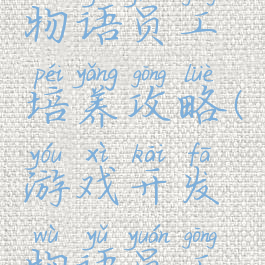 物语员工
péi yǎng gōng lüè
培养攻略(
yóu xì kāi fā
游戏开发
wù yǔ yuán gōng
物语员工